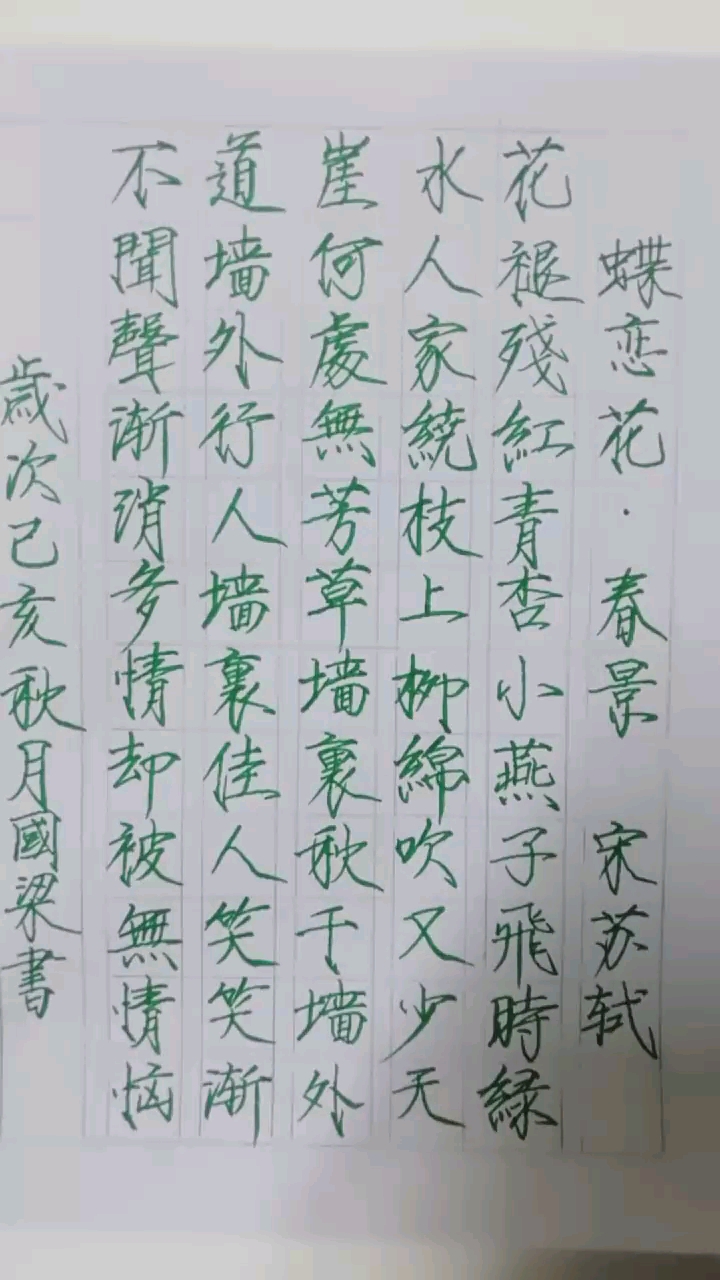 蝶恋花·春景 宋苏轼
花褪殘紅青杏小燕子飛時緑
水人家繞枝上柳綿吹又少天
崖何處無芳草墙裏秋千墙外
道墙外行人墙裏佳人笑笑渐
不聞聲渐消多情却被無情恼
歲次己亥秋月國梁書